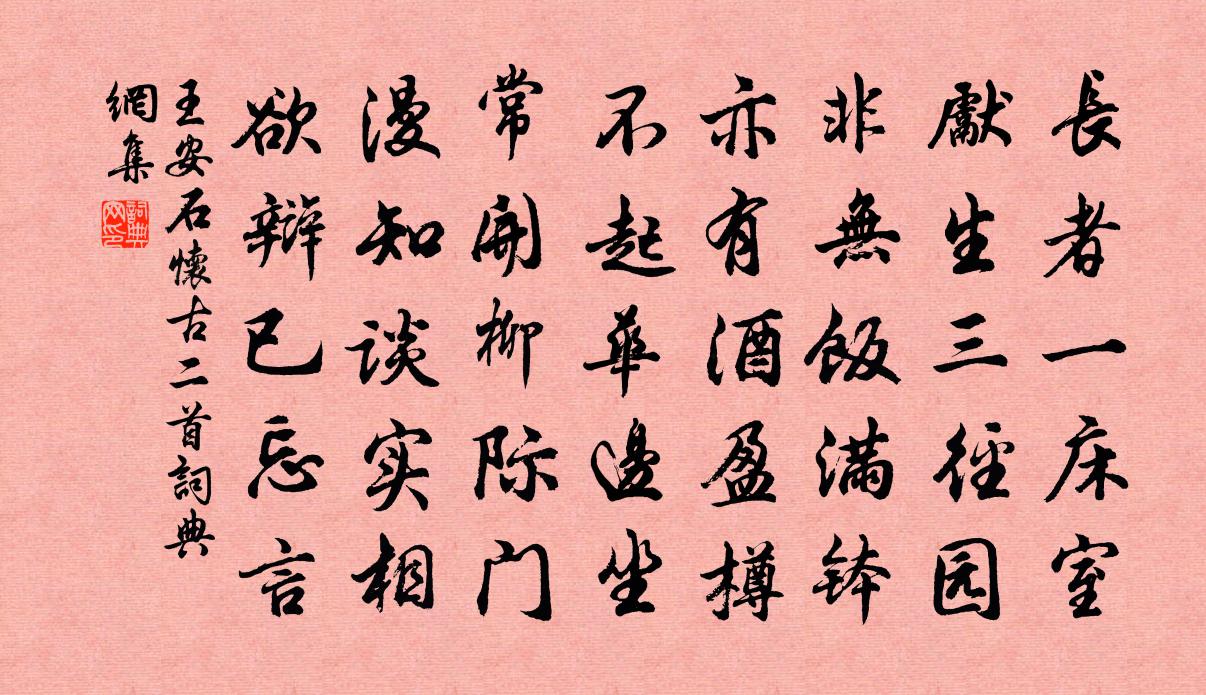 長者一床室
獻生三徑园
非無飯滿缽
亦有酒盈樽
不起華邊坐
常開柳际门
漫知谈实相
欲辯已忘言
王安石懷古二首詞典
網集
詞典
网印